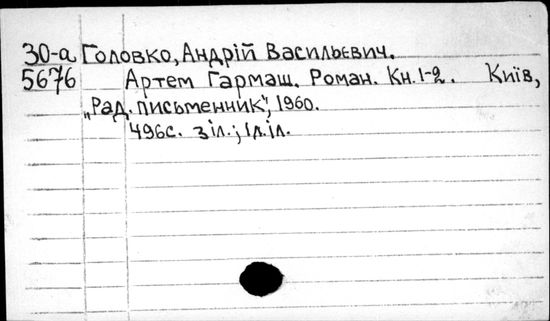 30-а Головко, Андрій Васильєвич.
5676 Артем Гармаш. Роман. Кн. 1-2. Київ,
„Рад. письменник", 1960.
496с. з іл.; 1л.іл.